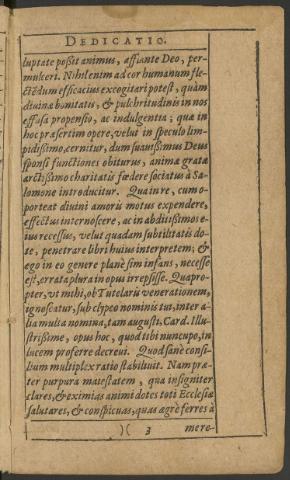 DEDICATIO.
luptate poßit animus, affiante Deo, per-
mulceri. Nihil enim ad cor humanum fle-
ctẽdum efficacius excogitari potest, quàm
diuinæ bonitatis, & pulchritudinis in nos
effusa propensio, ac indulgentia; quæ in
hoc præsertim opere, velut in speculo lim-
pidißimo, cernitur, dum suauißimus Deus
sponsi functiones obiturus, animæ gratæ
arctißimo charitatis fœdere sociatus à Sa-
lomone introducitur. Qua in re, cum o-
porteat diuini amoris motus expendere,
effectus internoscere, ac in abditißimos e-
ius recessus, velut quadam subtilitatis do-
te, penetrare libri huius interpretem; &
ego in eo genere planè sim infans, necesse
est, errata plura in opus irrepsisse. Quapro-
pter, vt mihi, ob Tutelaris venerationem,
ignoscatur, sub clypeo nominis tui, inter a-
lia multa nomina, tam augusti, Card. Illu-
strißime, opus hoc, quod tibi nuncupo, in
lucem proferre decreui. Quod sanè consi-
lium multiplex ratio stabiliuit. Nam præ-
ter purpuræ maiestatem, qua insigniter
clares, & eximias animi dotes toti Ecclesiæ
salutares, & conspicuas, quas ægrè ferres à
)( 3 mere-